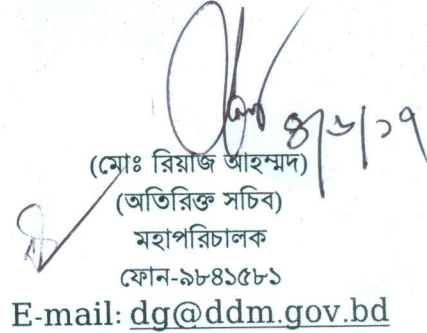 ৪/৬/১৭
(মোঃ রিয়াজ আহম্মদ)
(অতিরিক্ত সচিব)
মহাপরিচালক
ফোন-৯৮৪১৫৮১
E-mail: dg@ddm.gov.bd